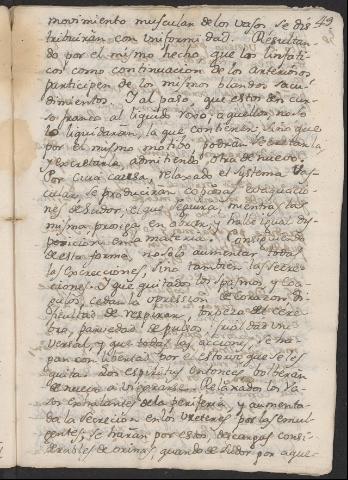 49
movimiento muscular de los vasos se dis
tribuirán con uniformidad. Resultan
do por el mismo hecho que los linfáti
cos como continuacion de los arteriosos
participen de los mismos blandos sacu
dimientos. Y al paso, que estos den cur
so franco al liquido roxo, aquellos no so
lo liquidarán, la que contienen, sino que
por el mismo motibo, podrán secretarla
y excretarla, admitiendo otra de nuevo.
Por cuia causa, relaxado el systema Vas
cular, se producirán copiosas evaquacio
nes de sudor, el que seguirá mientras las
misma, prosiga en obrar, y halle igual dis
posicion en la materia. Consiguiendo
de esta forma, no solo aumentar todas
las excrecciones, sino tambien las secre
ciones. Y que quitados los spasmos, y coa
gulos, cedan la opression de corazon, di
ficultad de respirar, torpeza del cere
bro, parvedad de pulsos, frialdad uni
versal, y que todas las acciones, se ha
gan con libertad por el estorvo que se les
quita. Los espiritus entonces bolberán
de nuevo a Relaxados los Va
sos exhalantes de la periferia, y aumenta
da la secreción en los Ureteres por las emul
gentes, se harán por estos descargas consi
derables de orinas, quando de sudor por aque-